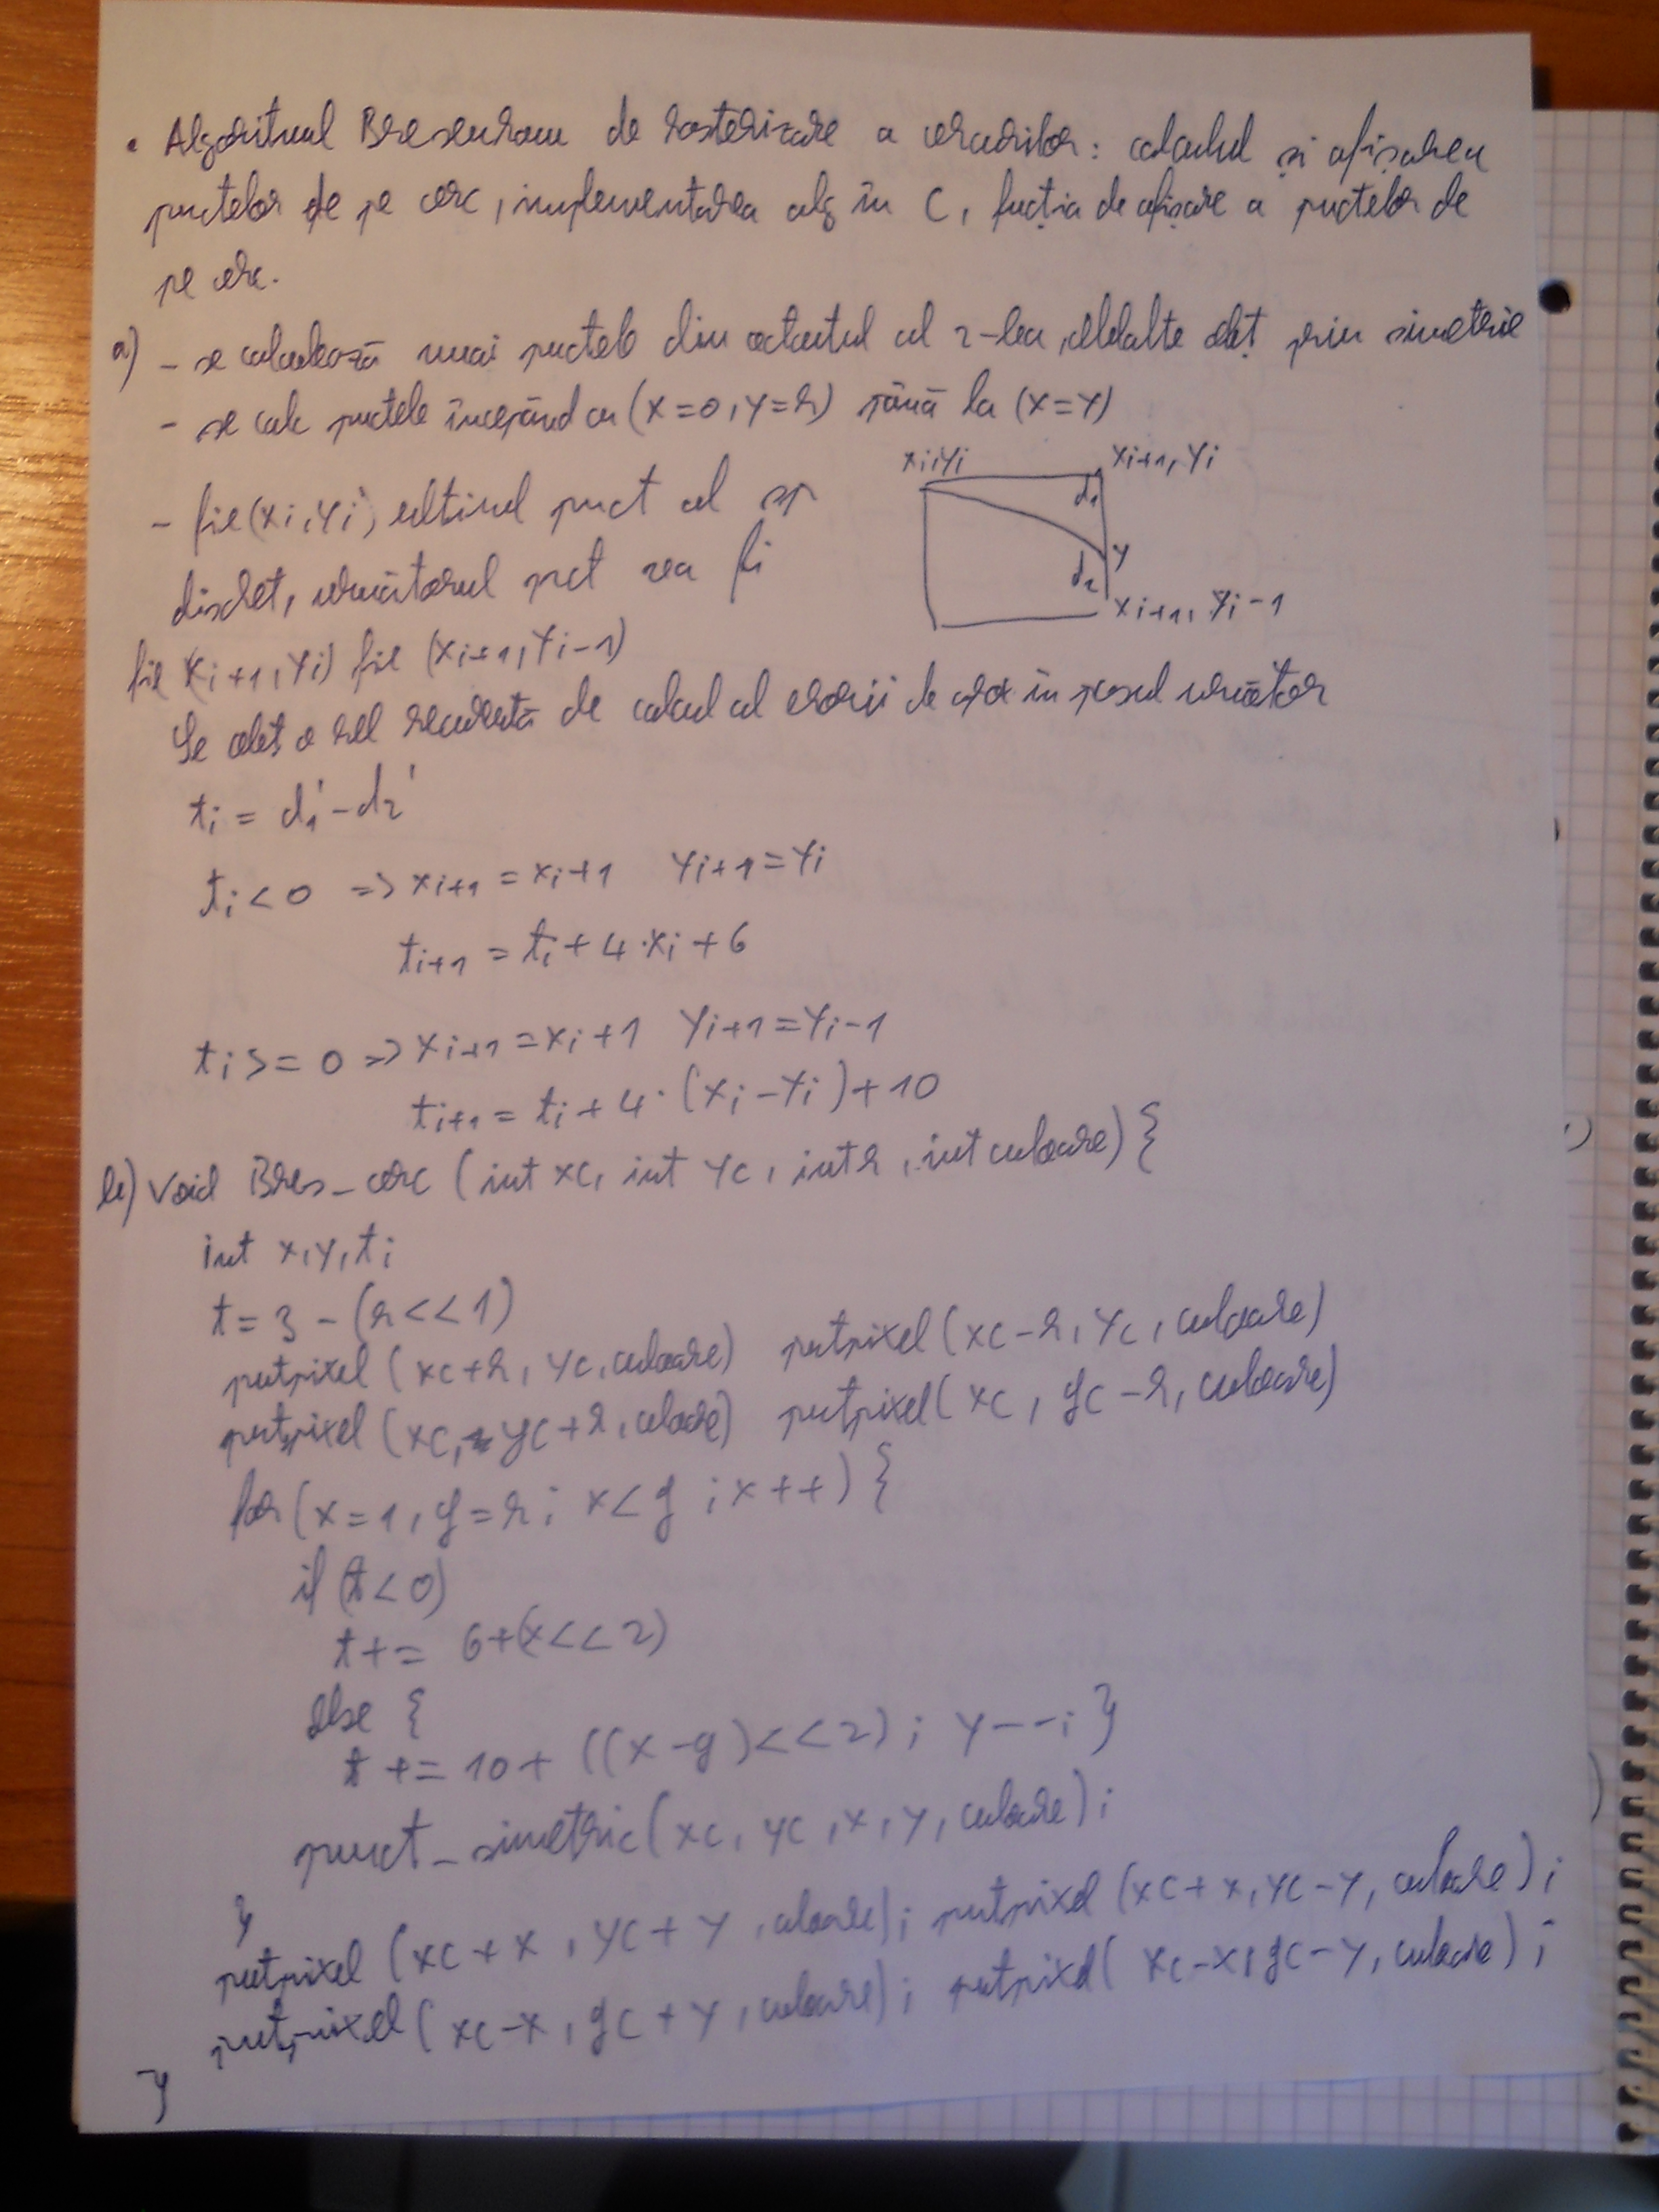 • Algoritmul Bresenham de rasterizare a cercurilor: calculul și afișarea
pctelor de pe cerc, implementarea alg în C, fucția de afișare a puctelor de
pe cerc.
a) - se calculează numai puctele din octantul al 2-lea, celelalte obț prin simetrie
- se calc puctele începând cu (x=0, y=r) până la (x=y)
xi,yi xi+1, yi
d1
y
d2
xi+1, yi-1
- fie (xi, yi) ultimul punct al sp
discret, următorul pct va fi
fie (xi+1, yi) fie (xi+1, yi-1)
Se obț o rel recurentă de calcul al erorii de aprox în pasul următor
ti = d1' - d2'
ti < 0 => xi+1 = xi+1 yi+1 = yi
ti+1 = ti + 4·xi + 6
ti >= 0 => xi+1 = xi+1 yi+1 = yi-1
ti+1 = ti + 4·(xi-yi)+10
b) void Bres_cerc (int xc, int yc, int r, int culoare) {
int x, y, t;
t = 3 - (r<<1)
putpixel (xc+r, yc, culoare) putpixel (xc-r, yc, culoare)
putpixel (xc, yc+r, culoare) putpixel (xc, yc-r, culoare)
for (x=1, y=r; x<y; x++) {
if (t<0)
t += 6+(x<<2)
else {
t += 10+ ((x-y)<<2); y--; }
punct_simetric (xc, yc, x, y, culoare);
}
putpixel (xc+x, yc+y, culoare); putpixel (xc+x, yc-y, culoare);
putpixel (xc-x, yc+y, culoare); putpixel (xc-x, yc-y, culoare);
}